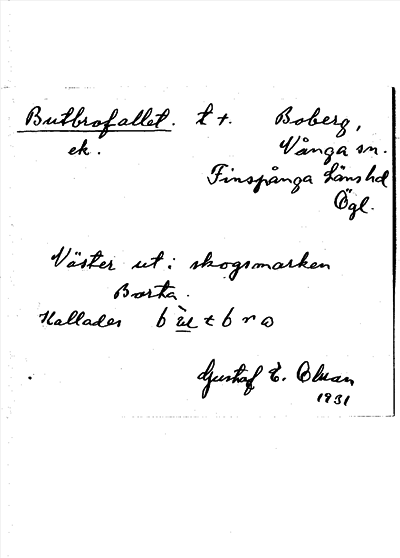 Butbrofallet. t +. Boberg,
ek. Vånga sn.
Finspånga länshd
Ögl.
Väster ut i skogsmarken
Borta.
Kallades bùtbro
Gustaf E. Olsson
1931